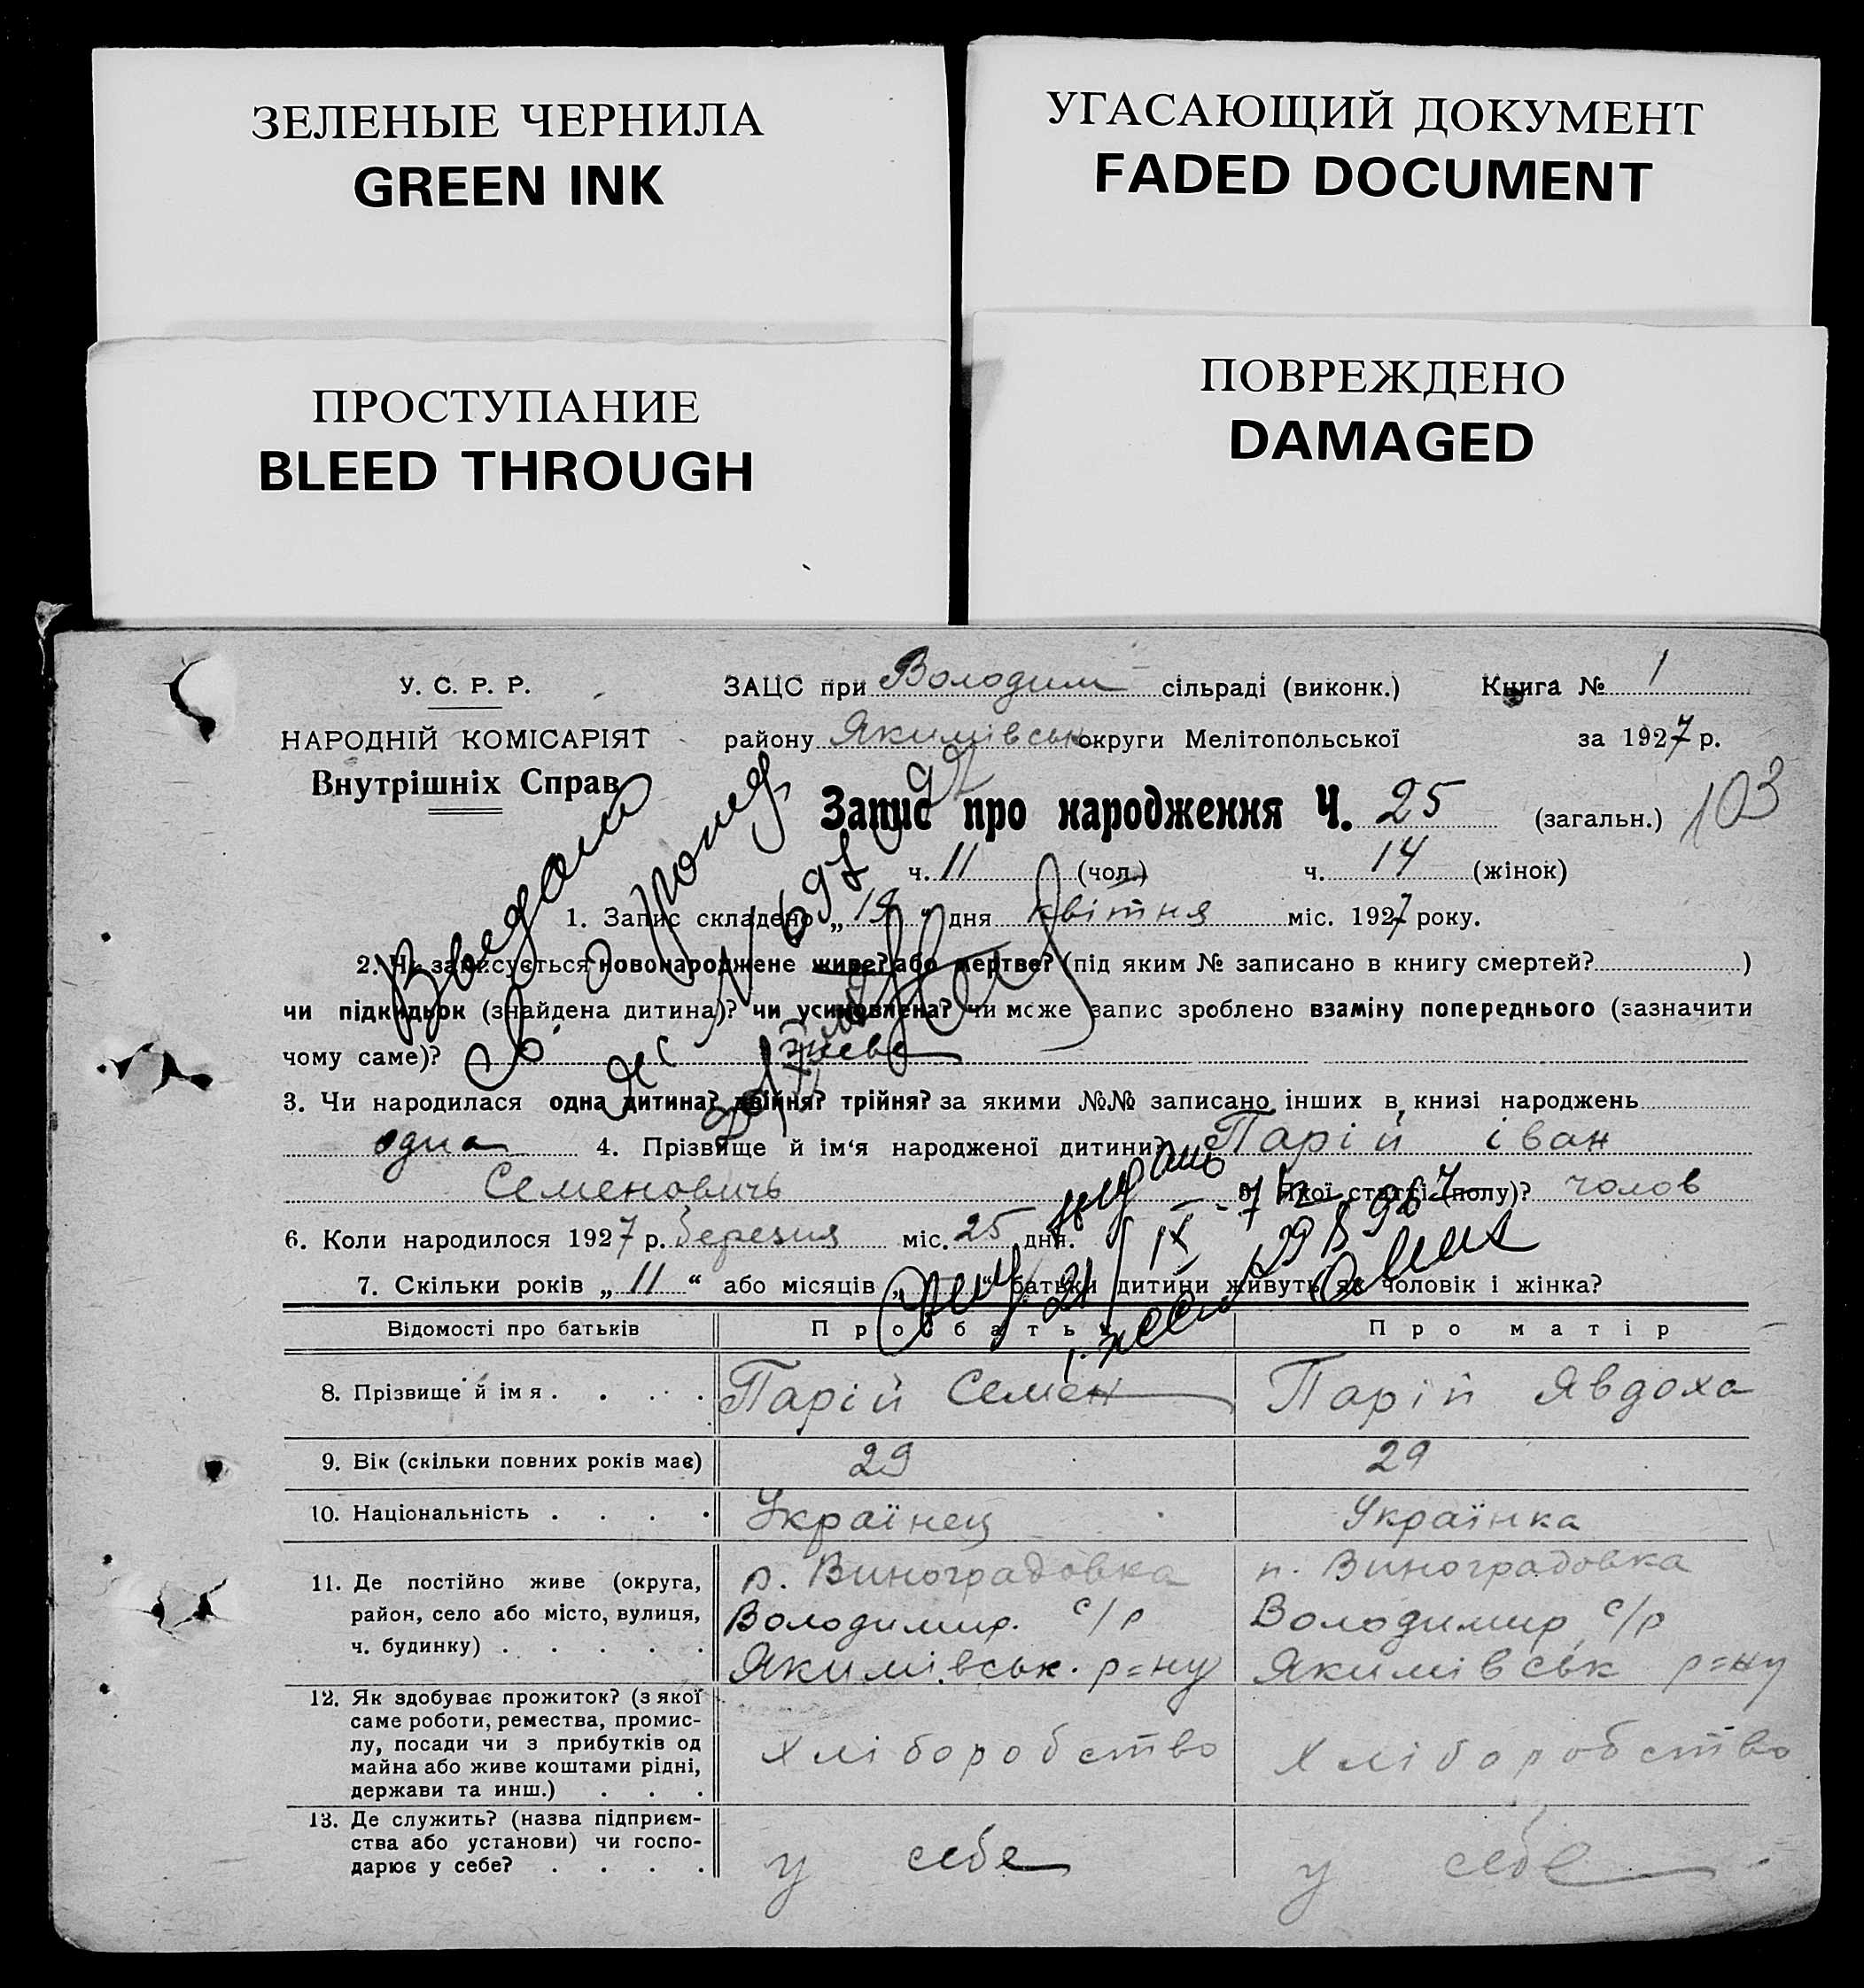 ЗЕЛЕНЫЕ ЧЕРНИЛА
GREEN INK
УГАСАЮЩИЙ ДОКУМЕНТ
FADED DOCUMENT
ПРОСТУПАНИЕ
BLEED THROUGH
ПОВРЕЖДЕНО
DAMAGED
У. С. Р. Р.
НАРОДНІЙ КОМІСАРІЯТ
Внутрішніх Справ
ЗАЦС при Володим сільраді (виконк.) Книга № 1
району Якимівськ округи Мелітопольської за 1927 р.
Запис про народження Ч. 25 (загальн.) 103
ч. 11 (чол.) ч. 14 (жінок)
1. Запис складено „ “ дня квітня міс. 1927 року.
2. Чи записується новонароджене живе? або мертве? (під яким № записано в книгу смертей? )
чи підкидьок (знайдена дитина)? чи усиновлена? чи може запис зроблено взаміну попереднього (зазначити
чому саме)?
3. Чи народилася одна дитина? двійня? трійня? за якими №№ записано інших в книзі народжень
одна 4. Прізвище й ім‘я народженої дитини? Парій іван
Семеновичь 5. Якої статті (полу)? чолов
6. Коли народилося 1927 р. березня міс. 25 дня.
7. Скільки років „ 11 “ або місяців „ “ батьки дитини живуть як чоловік і жінка?
Відомості про батьків Про батька Про матір
8. Прізвище й імя . . . . Парій Семен Парій Явдоха
9. Вік (скільки повних років має) 29 29
10. Національність . . . . Українец Українка
11. Де постійно живе (округа, п. Виноградовка п. Виноградовка
район, село або місто, вулиця, Володимир. с/р Володимир с/р
ч. будинку) . . . . . Якимівськ. р=ну Якимівськ р=ну
12. Як здобуває прожиток? (з якої
саме роботи, ремества, промис-
лу, посади чи з прибутків од хліборобство хліборобство
майна або живе коштами рідні,
держави та инш.) . . .
13. Де служить? (назва підприєм-
ства або установи) чи госпо- у себе у себе
дарює у себе? . . . .